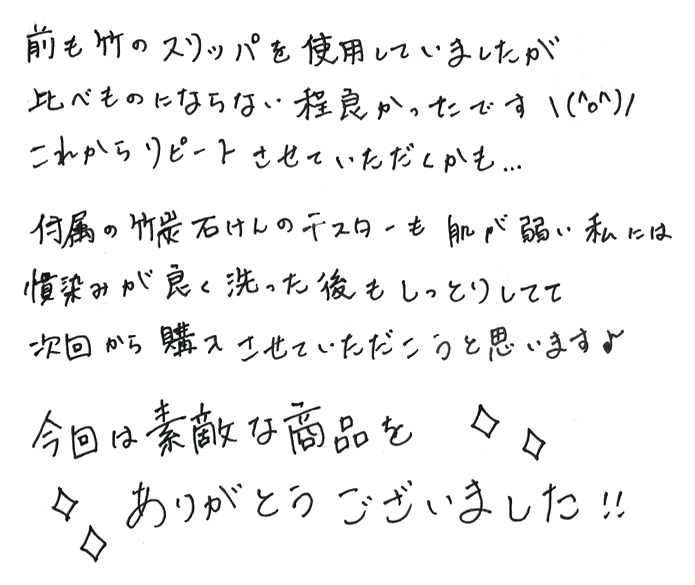 前も竹のスリッパを使用していましたが
比べものにならない程良かったです \(^o^)/
これからリピートさせていただくかも…
付属の竹炭石けんのテスターも肌が弱い私には
慣染みが良く洗った後もしっとりしてて
次回から購入させていただこうと思います♪
今回は素敵な商品を
ありがとうございました!!